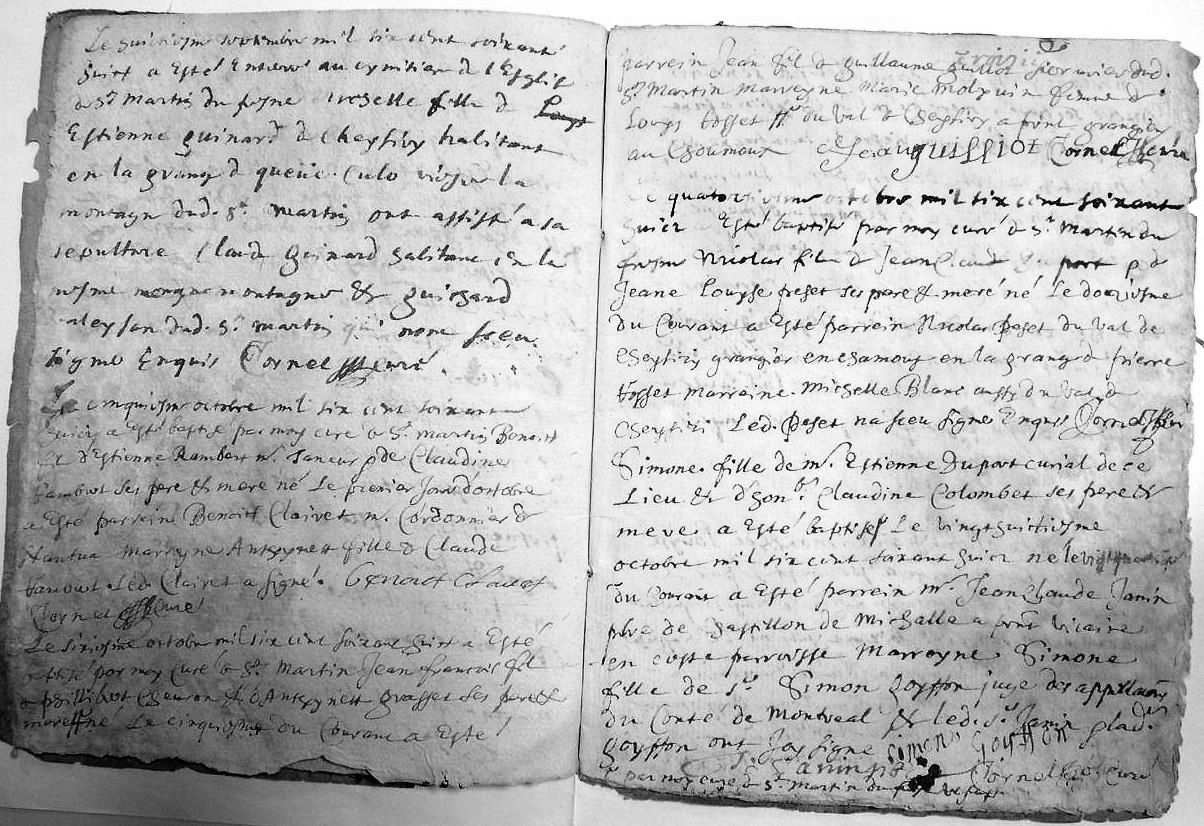 Le huictiesme septembre mil six cent soixante
huict a Esté Enterré au cymitiere de l'Esglise
de St Martin du fresne fille de
Estienne guinard de Cheysiry habitant
en la grange de
montagne dud. St. martin ont assisté a sa
sepulture Claude guinard habitant en la
mesme montagne & guichard
aleysan dud. St. martin qui nont sceu
signe Enquis Cornet Curé.
Le cinquiesme octobre mil six cent soixante
huict a esté baptisé par moy curé de St. martin Benoist
fil d'Estienne Rambert m. Taneur & de Claudine
Rambert ses pere & mere né Le premier Jour d'octobre
a Esté parrein Benoist Clairet m. Cordonnier de
Nantua Marrayne Anthoynette fille de Claude
Led. Clairet a signé. Benoist Clairet
Cornet Curé
Le sixiesme octobre mil six cent soixante huict a Esté
baptisé par moy Curé de St. Martin Jean francois fil
de & d'Anthoynette grasset ses pere &
mere né Le cinquiesme du Courant a Esté
parrein Jean fil de guillaume guillot dud.
St. Martin marrayne Marie Molyuin femme de
Louys tosset du val de Cheysiry a pnt grangier
au Choumoux Cornet Curé
Le quatorsiesme octobre mil six cent soixante
huict Esté baptise par moy curé de St. Martin du
fresne Nicolas fil de Jean Claude & de
Jeane Louyse peset ses pere & mere né Le douziesme
du Courant a Esté parrein Nicolas peset du val de
Cheysiry grangier en chamoux en la grange de pierre
tosset marraine. Michelle Blanc aussy du val de
Cheysiri Led. peset na sceu signe Enquis Cornet Curé
Simone fille de mr. Estienne Duport curial de ce
Lieu & d'hon. Claudine Colombet ses pere &
mere a Esté baptisé Le vingt huictiesme
octobre mil six cent soixant huict né le
du Courant a Esté parrein mr. Jean Claude Janin
pbre de Chastillon de Michalle a pnt vicaire
en ceste parroisse Marrayne Simone
fille de Sr. Simon goyffon juge des appellaons
du Conté de Montreal & led. Sr. Janin & lad.
goyffon ont Icy signe Simone Goyffon
Janin pbre Cornet Curé
par moy curé de St. Martin du fresne